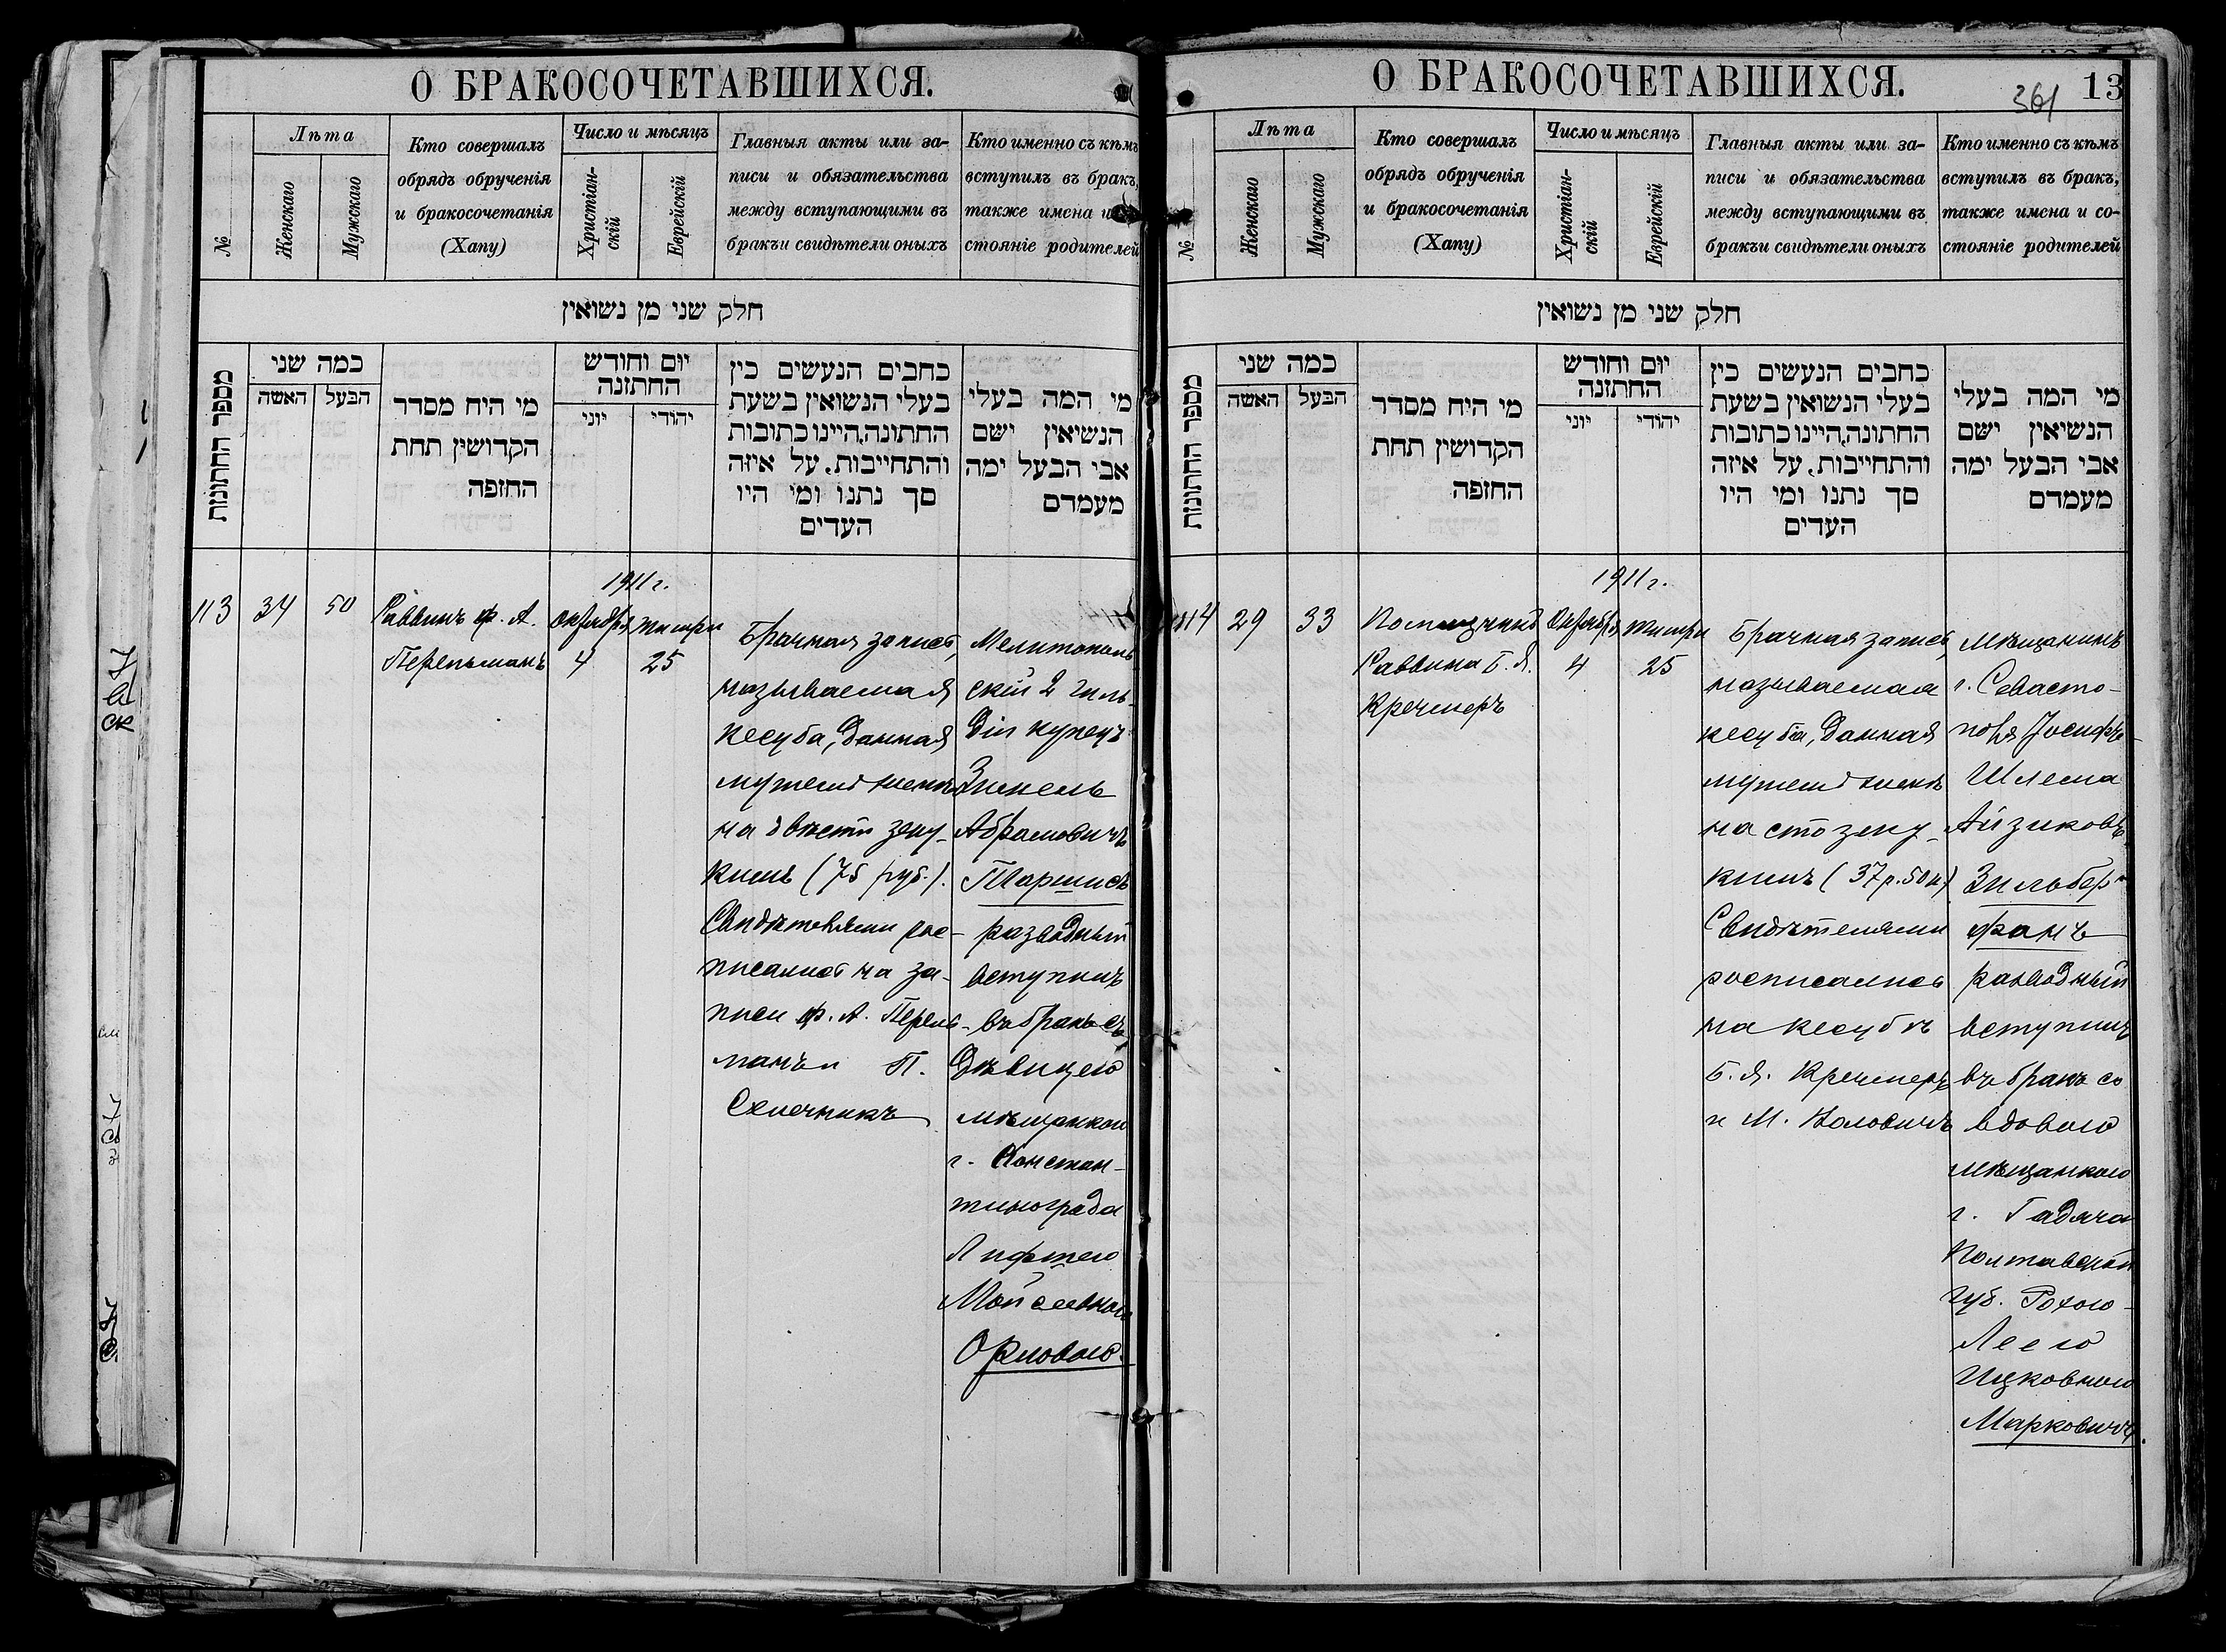 О БРАКОСОЧЕТАВШИХСЯ.
№
Лѣта
Женскаго
Мужскаго
Кто совершалъ
обрядъ обрученія
и бракосочетанія
(Хапу)
Число и мѣсяцъ
Христіан-
скій
Еврейскій
Главныя акты или за-
писи и обязательства
между вступающими въ
бракъи свидѣтели оныхъ
Кто именно съ кѣмъ
вступилъ въ бракъ,
также имена и
стояніе родителей
חלק שני מן נשואין
מספר החתונות
כמה שני
האשה
הבעל
מי היח מסדר
הקדושין תחת
החזפה
יום וחודש
החתזנה
יוני
יהודי
כחבים הנעשים כין
בעלי הנשואין בשעת
החתונה,היינו כתובות
והתחייבות. על איזה
סך נתנו ומי היו
העדים
מי המה בעלי
הנשיאין ישם
אבי הבעל ימה
מעמדם
113
34
50
Раввинъ Ф. А.
Перельманъ
1911 г.
Октября
4
Тишри
25
Брачная запись,
называемая
кесуба, данная
мужемъ женѣ
на двѣсти зеку-
кимъ (75 руб.).
Свидѣтелями рос-
писались на за-
писи Ф. А. Перель-
манъ и П.
Схиечникъ
Мелитополь
скій 2 гиль-
діи купецъ
Зискель
Абрамовичъ
Таршисъ
разводный
вступилъ
въ бракъ съ
дѣвицею
мѣщанкой
г. Констан-
тинограда
Лифшею
Мойсеевной
Орловою.
О БРАКОСОЧЕТАВШИХСЯ.
361
13
№
Лѣта
Женскаго
Мужскаго
Кто совершалъ
обрядъ обрученія
и бракосочетанія
(Хапу)
Число и мѣсяцъ
Христіан-
скій
Еврейскій
Главныя акты или за-
писи и обязательства
между вступающими въ
бракъи свидѣтели оныхъ
Кто именно съ кѣмъ
вступилъ въ бракъ,
также имена и со-
стояніе родителей
חלק שני מן נשואין
מספר החתונות
כמה שני
האשה
הבעל
מי היח מסדר
הקדושין תחת
החזפה
יום וחודש
החתזנה
יוני
יהודי
כחבים הנעשים כין
בעלי הנשואין בשעת
החתונה,היינו כתובות
והתחייבות. על איזה
סך נתנו ומי היו
העדים
מי המה בעלי
הנשיאין ישם
אבי הבעל ימה
מעמדם
114
29
33
Помощникъ
Раввина Б. Я.
Кречмеръ
1911 г.
Октября
4
Тишри
25
Брачная запись,
называемая
кесуба, данная
мужемъ женѣ
на сто зеку-
кимъ (37 р. 50 к.)
Свидѣтелями
росписались
на кесубѣ
Б. Я. Кречмеръ
и М. Воловичъ
Мѣщанинъ
г. Севасто-
поля Іосифъ-
Шлема
Айзиковъ
Зильбер-
фанъ
разводный
вступилъ
въ бракъ со
вдовою
мѣщанкою
г. Гадяча
Полтавской
губ. Рохою-
Леею
Ицковною
Марковичъ.